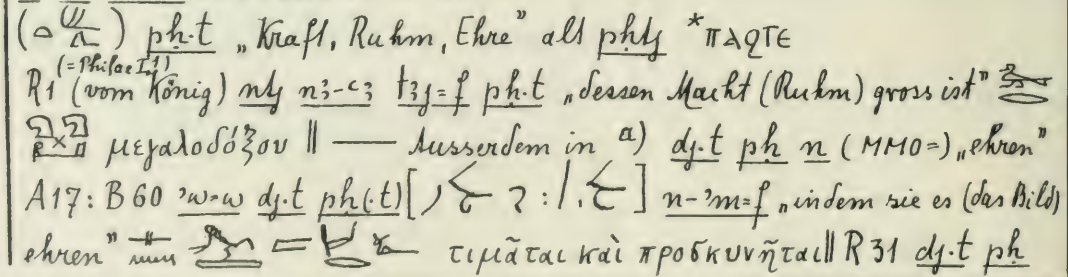 ( ) pḥ.t „Kraft, Ruhm, Ehre" alt pḥtj *ⲡⲁϩⲧⲉ
(=Philae I,1)
R1 (vom König) ntj nꜣ-ꜥꜣ tꜣj=f pḥ.t „dessen Macht (Ruhm) gross ist"
μεγαλοδόξου ‖ — Ausserdem in a) dj.t pḥ n (MMO=) „ehren"
A17: B 60 ꜣw=w dj.t pḥ(.t) [ : ] n-ꜣm=f „indem sie es (das Bild)
ehren" τιμᾶται καὶ προσκυνῆται ‖ R 31 dj.t pḥ